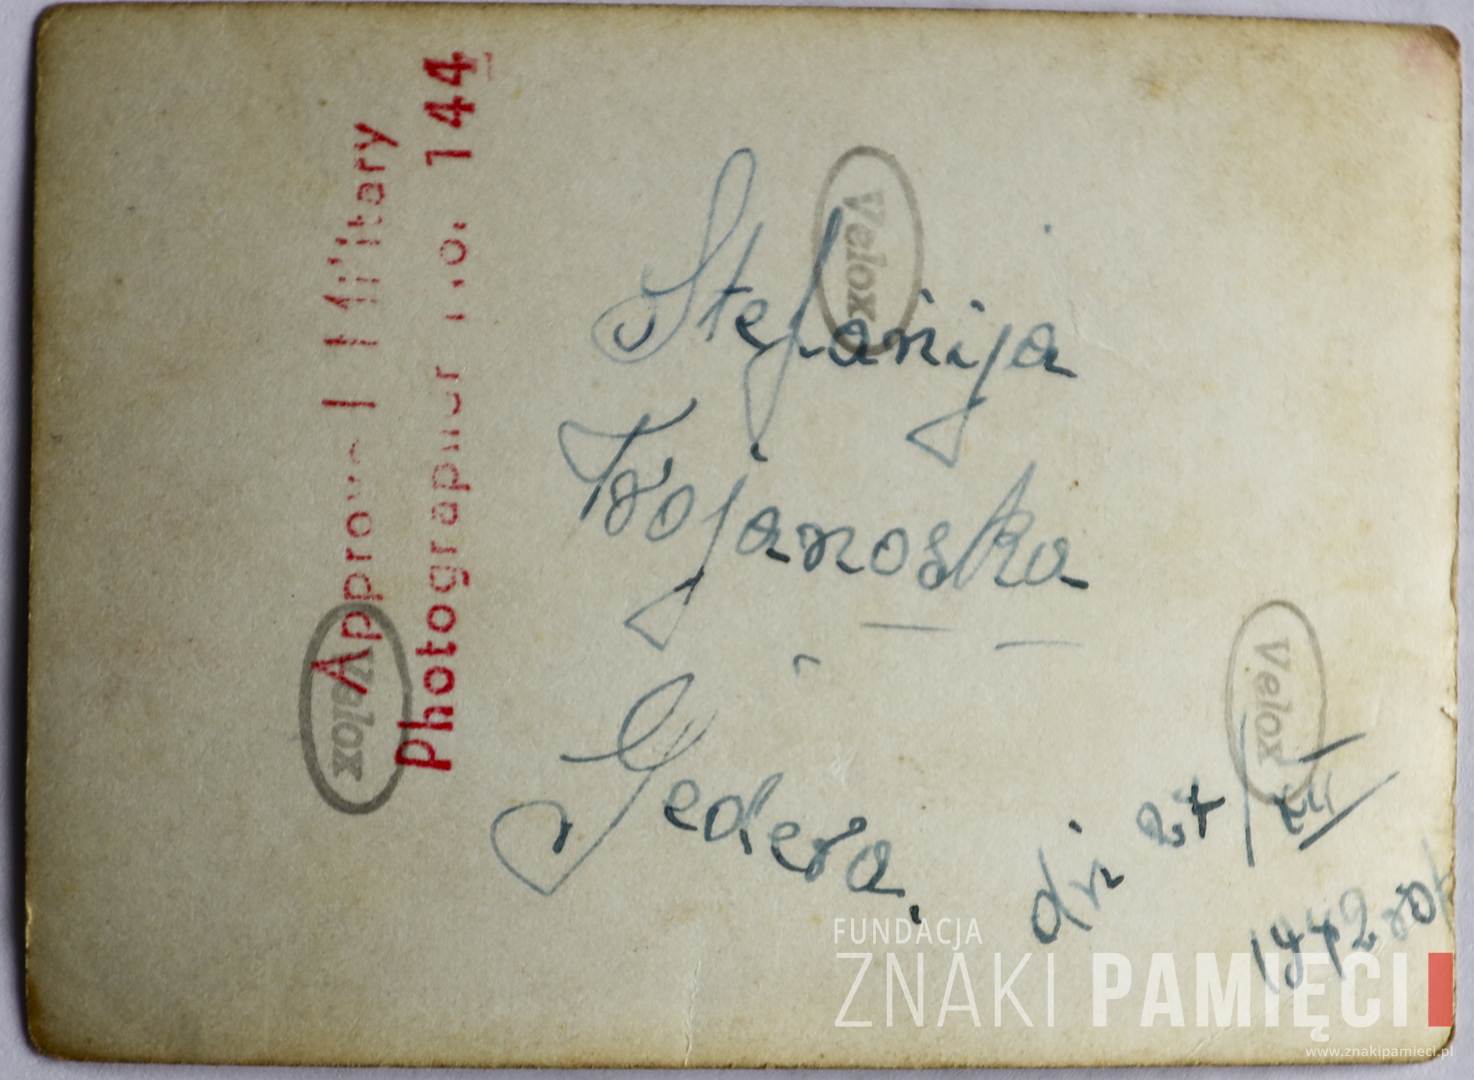 Approved Military
Photographer No. 144
Velox
Velox
Velox
Stefanija
Trojanoska
Gedera.
dn 24/XII
1942 rok
FUNDACJA
ZNAKI PAMIĘCI
www.znakipamieci.pl